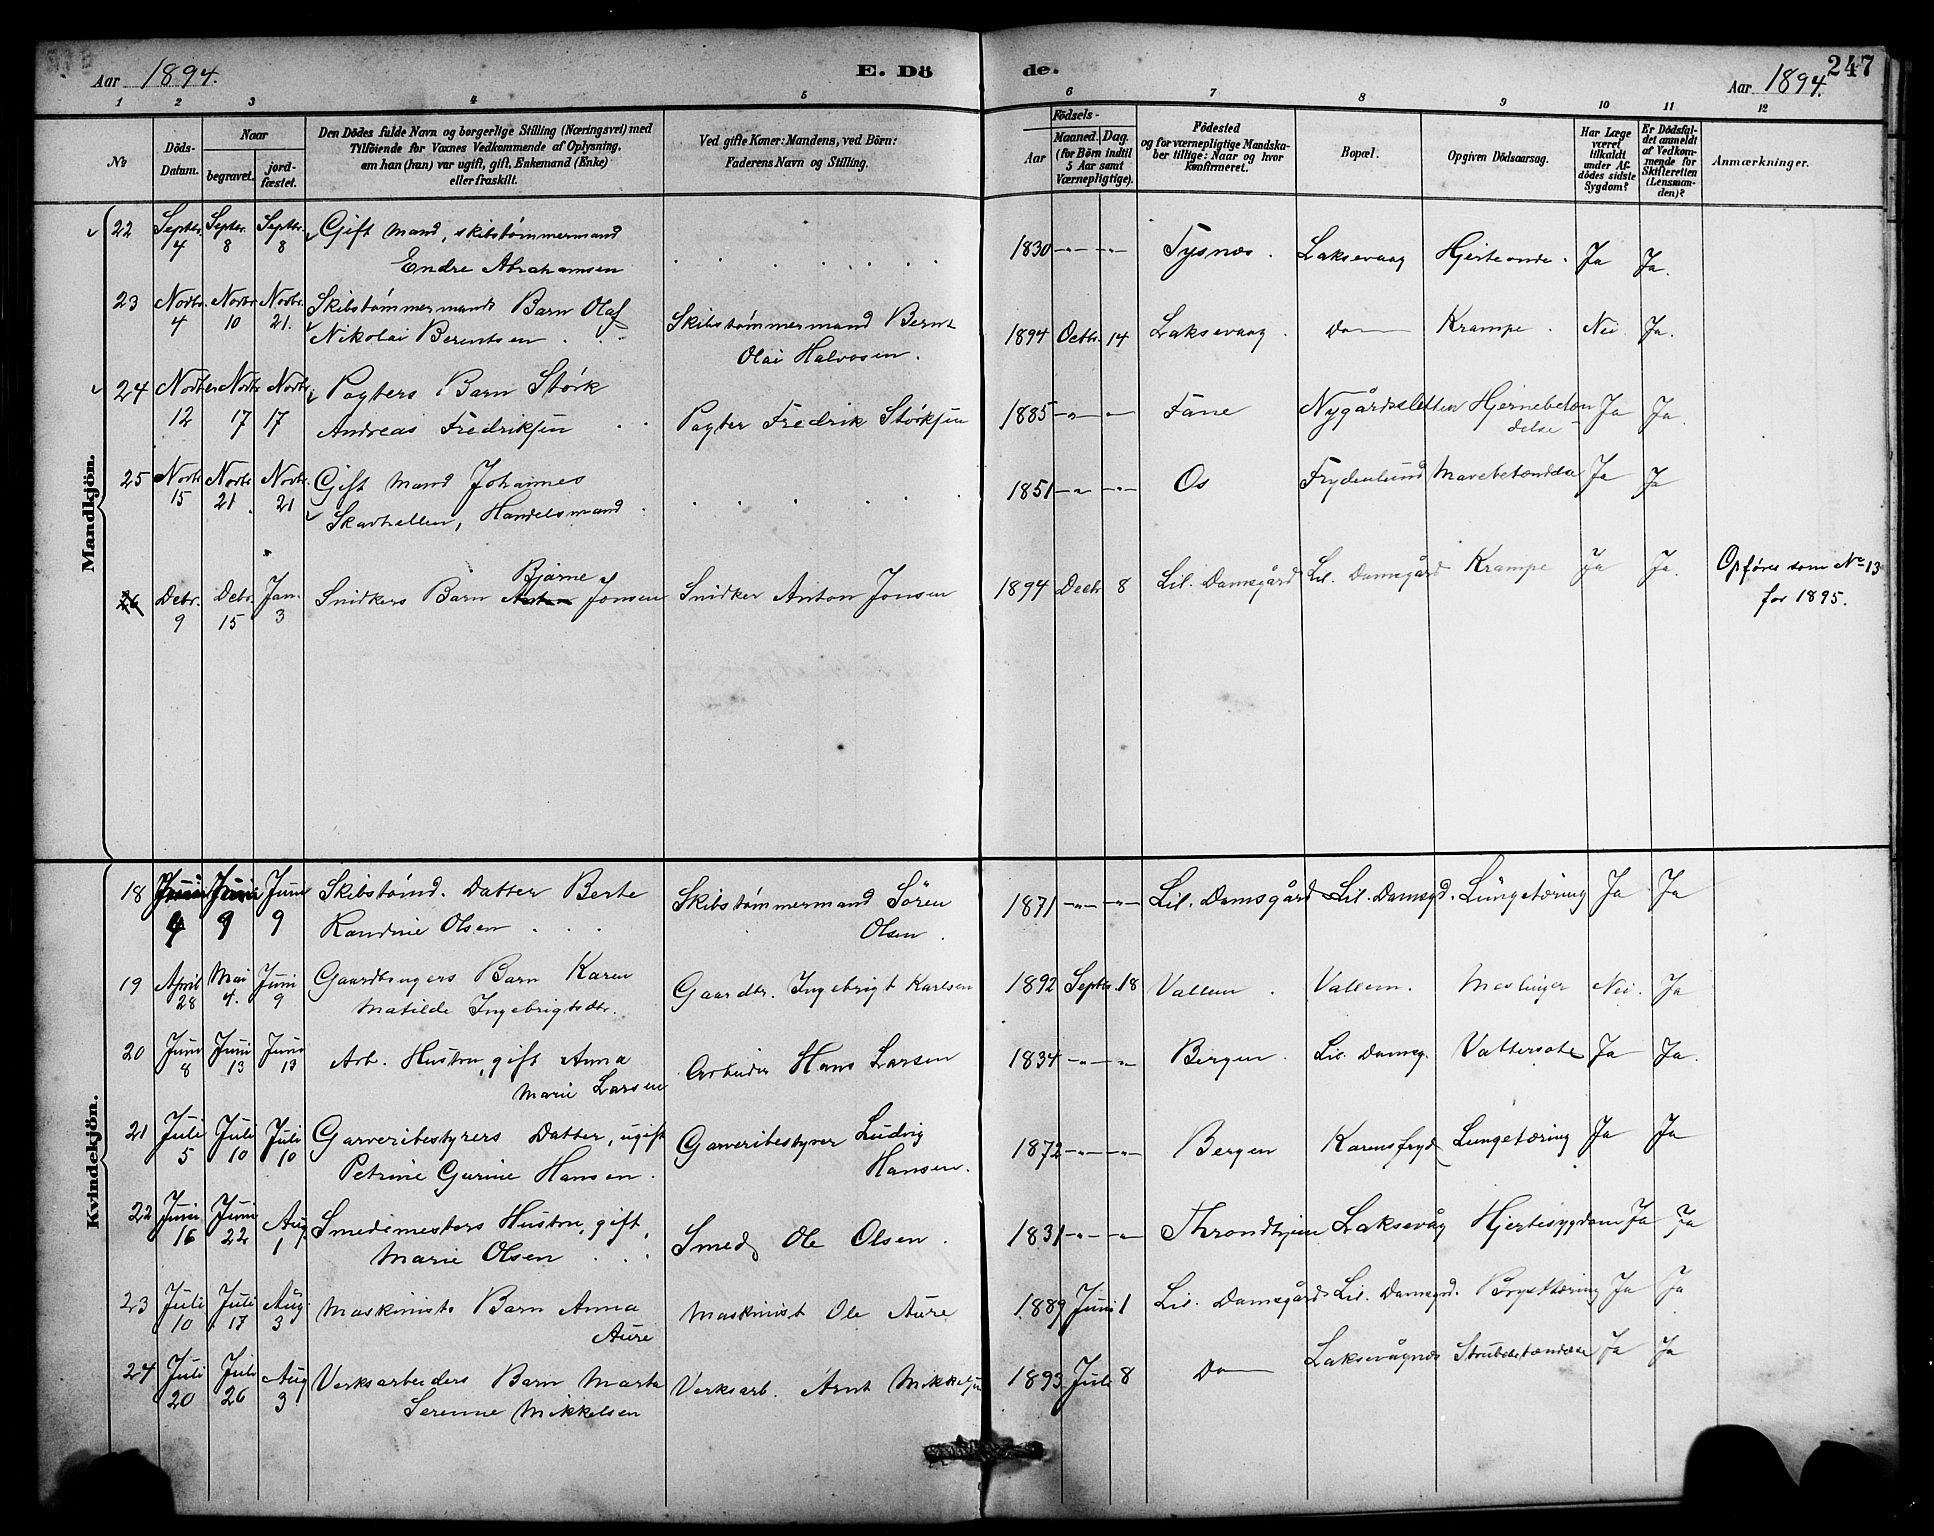 Aar 1894.
E. Dö
de.
Aar 1894.
247
1 2 3 4 5 6 7 8 9 10 11 12
No
Döds-Datum.
Naar
begravet.
jord-fæstet.
Den Dödes fulde Navn og borgerlige Stilling (Næringsvei) med
Tilföiende for Voxnes Vedkommende af Oplysning,
om han (hun) var ugift, gift, Enkemand (Enke)
eller fraskilt.
Ved gifte Koner: Mandens, ved Börn:
Faderens Navn og Stilling.
Födsels-
Aar
Maaned. Dag.
(for Börn indtil
5 Aar samt
Værnepligtige).
Födested
og for værnepligtige Mandska-
ber tillige: Naar og hvor
Konfirmeret.
Bopæl.
Opgiven Dödsaarsag.
Har Læge
været
tilkaldt
under Af-
dödes sidste
Sygdom?
Er Dödsfal-
det anmeldt
af Vedkom-
mende for
Skifteretten
(Lensman-
den)?
Anmærkninger.
Mandkjön.
22 Septbr. 4 Septbr. 8 Septbr. 8 Gift Mand, skibstømmermand
Endre Abrahamsen
1830 -"- -"- Tysnæs. Laksevaag Hjerteonde. Ja Ja.
23 Novbr. 4 Novbr 10 Novbr. 21. Skibstømmermands Barn Olaf
Nikolai Berentsen
Skibstømmermand Bernt
Olai Halvosen.
1894 Octbr. 14 Laksevaag. Do Krampe. Nei Ja.
24 Novber 12 Novbr 17 Novbr 17 Pagters Barn Størk
Andreas Fredriksen
Pagter Fredrik Størksen
1885 -"- -"- Fane Nygårdssletten Hjernebeten
delse Ja Ja.
25 Novbr 15 Novbr 21. Novbr. 21 Gift Mand Johannes
Skavhellen, Handelsmand.
1851 -"- -"- Os Frydenlund Mavebetændelse Ja Ja
26 Debr. 9 Debr. 15 Jan. 3 Bjarne
Snidkers Barn Jonsen Snidker Anton Jonsen
1894 Decbr 8 Lil. Damsgård Lil. Damsgård Krampe Ja Ja. Opføres som No 13
for 1895.
Kvindekjön.
18 Juni 4 Juni 9 Juni 9 Skibstømd. Datter Berte
Randine Olsen
Skibstømmermand Sören
Olsen.
1871 -"- -"- Lil. Damsgård Lil. Damsgd. Lungetæring Ja Ja
19 April 28 Mai 4. Juni 9 Gaardbrugers Barn Karen
Matilde Ingebrigtsdtr.
Gaardbr. Ingebrigt Karlsen
1892 Septbr. 18 Vallem. Vallem. Meslinger Nei. Ja
20 Juni 8 Juni 13 Juni 13 Arb. Hustru, gift Anna
Marie Larsen
Arbeider Hans Larsen
1834 -"- -"- Bergen. Lil. Damsg. Vattersot Ja Ja.
21 Juli 5 Juli 10 Juli 10 Garveribestyrers Datter, ugift
Petrine Gurine Hansen.
Garveribestyrer Ludvig
Hansen.
1872 -"- -"- Bergen Karensfryd Lungetæring Ja Ja
22 Juni 16 Juni 22 Aug 1 Smedemesters Hustru, gift,
Marie Olsen
Smed Ole Olsen.
1831 -"- -"- Throndhjem Laksevåg Hjertesygdom Ja Ja
23 Juli 10 Juli 17 Aug. 3 Maskinists Barn Anna
Aure
Maskinist Ole Aure
1889 Juni 1 Lil. Damsgård Lil. Damsgrd. Brysttæring Ja Ja
24 Juli 20 Juli 26 Aug 3 Verksarbeiders Barn Marta
Serenne Mikkelsen
Verksarb. Arnt Mikkelsen
1893 Juli 8 Do Laksevågnæs Strubebetændelse Ja Ja